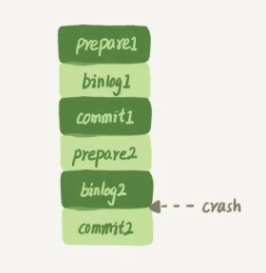 prepare1
binlog1
commit1
prepare2
binlog2
crash
commit2